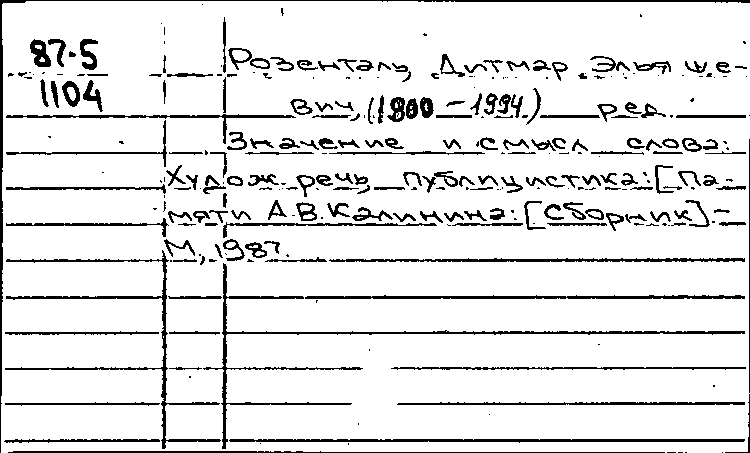 87-5
1104
Розенталь, Дитмар Эльяше-
вич, (1900 - 1994) ред.
Значение и смысл слова:
Худож. речь, публицистика: [Па-
мяти А.В. Калинина: [Сборник] -
М., 1987.